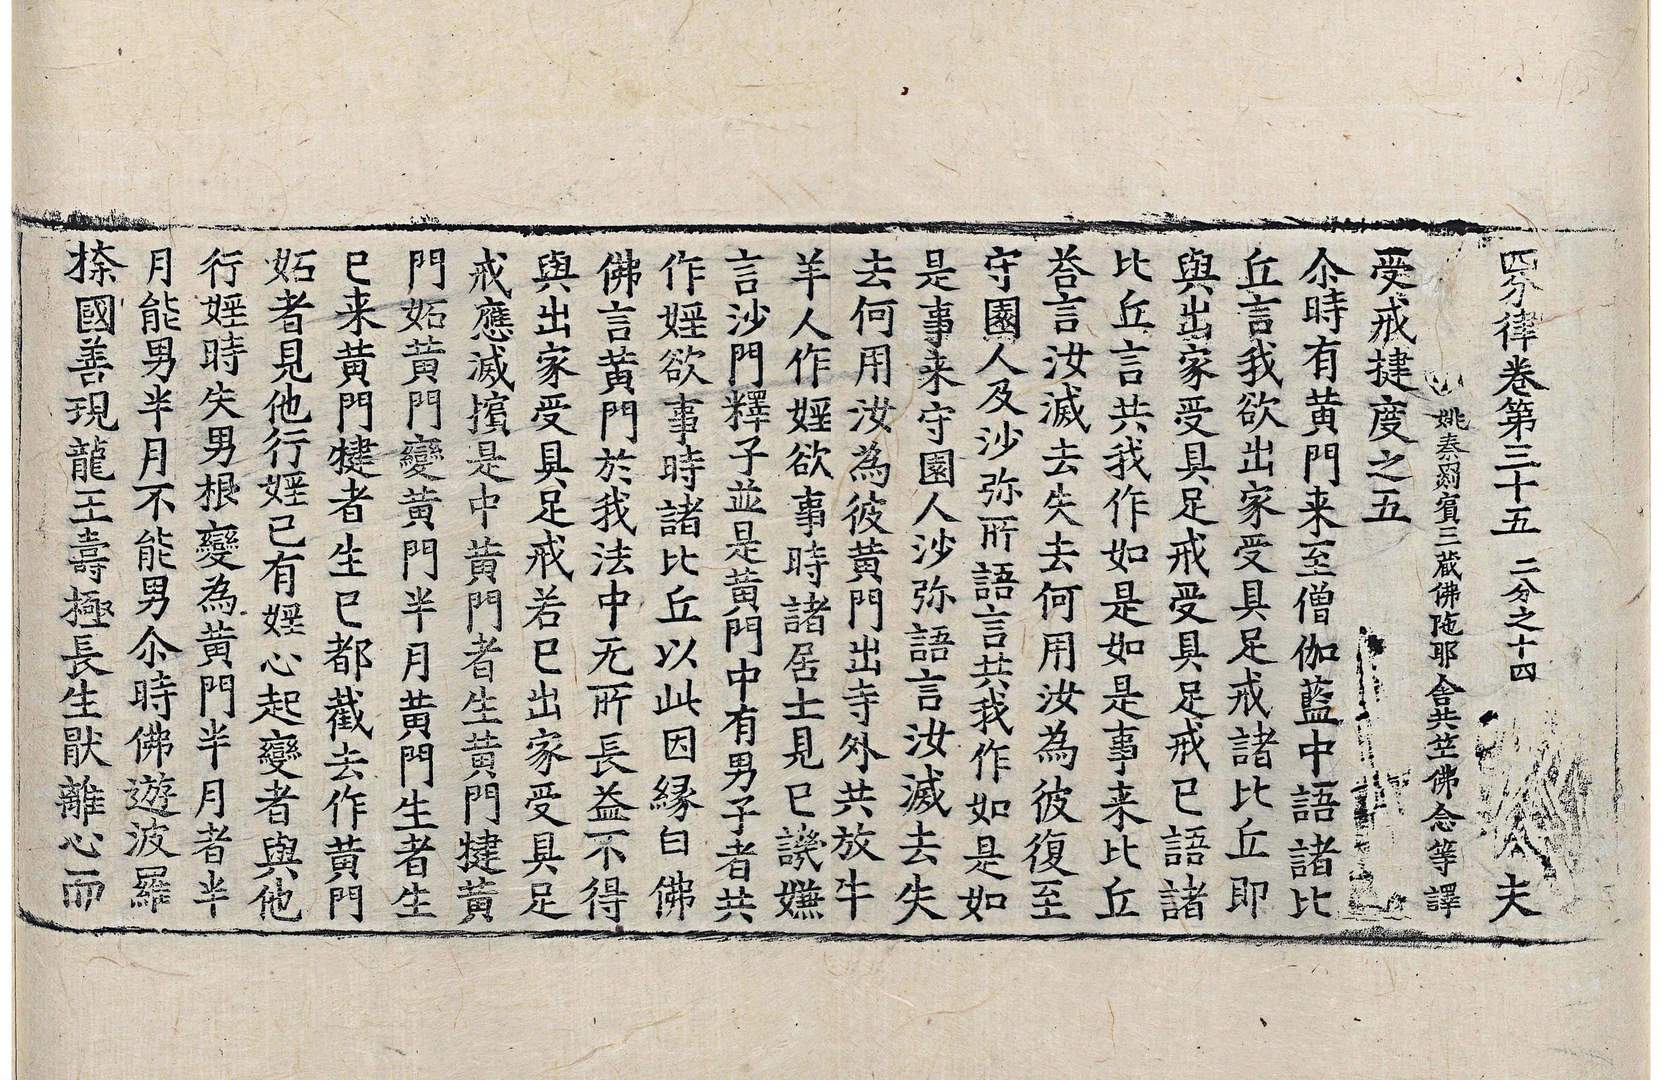 四分律卷第三十五 二分之十四 夫
姚秦罽賓三蔵佛陁耶舍共竺佛念等譯
受戒揵度之五
尒時有黄門来至僧伽藍中語諸比
丘言我欲出家受具足戒諸比丘即
與出家受具足戒受具足戒已語諸
比丘言共我作如是如是事来比丘
荅言汝滅去失去何用汝為彼復至
守園人及沙弥所語言共我作如是如
是事来守園人沙弥語言汝滅去失
去何用汝為彼黄門出寺外共放牛
羊人作婬欲事時諸居士見已譏嫌
言沙門釋子並是黄門中有男子者共
作婬欲事時諸比丘以此因縁白佛
佛言黄門於我法中无所長益不得
與出家受具足戒若已出家受具足
戒應滅擯是中黄門者生黄門犍黄
門妬黄門變黄門半月黄門生者生
已来黄門犍者生已都截去作黄門
妬者見他行婬已有婬心起變者與他
行婬時失男根變為黄門半月者半
月能男半月不能男尒時佛遊波羅
㮈國善現龍王壽極長生猒離心而